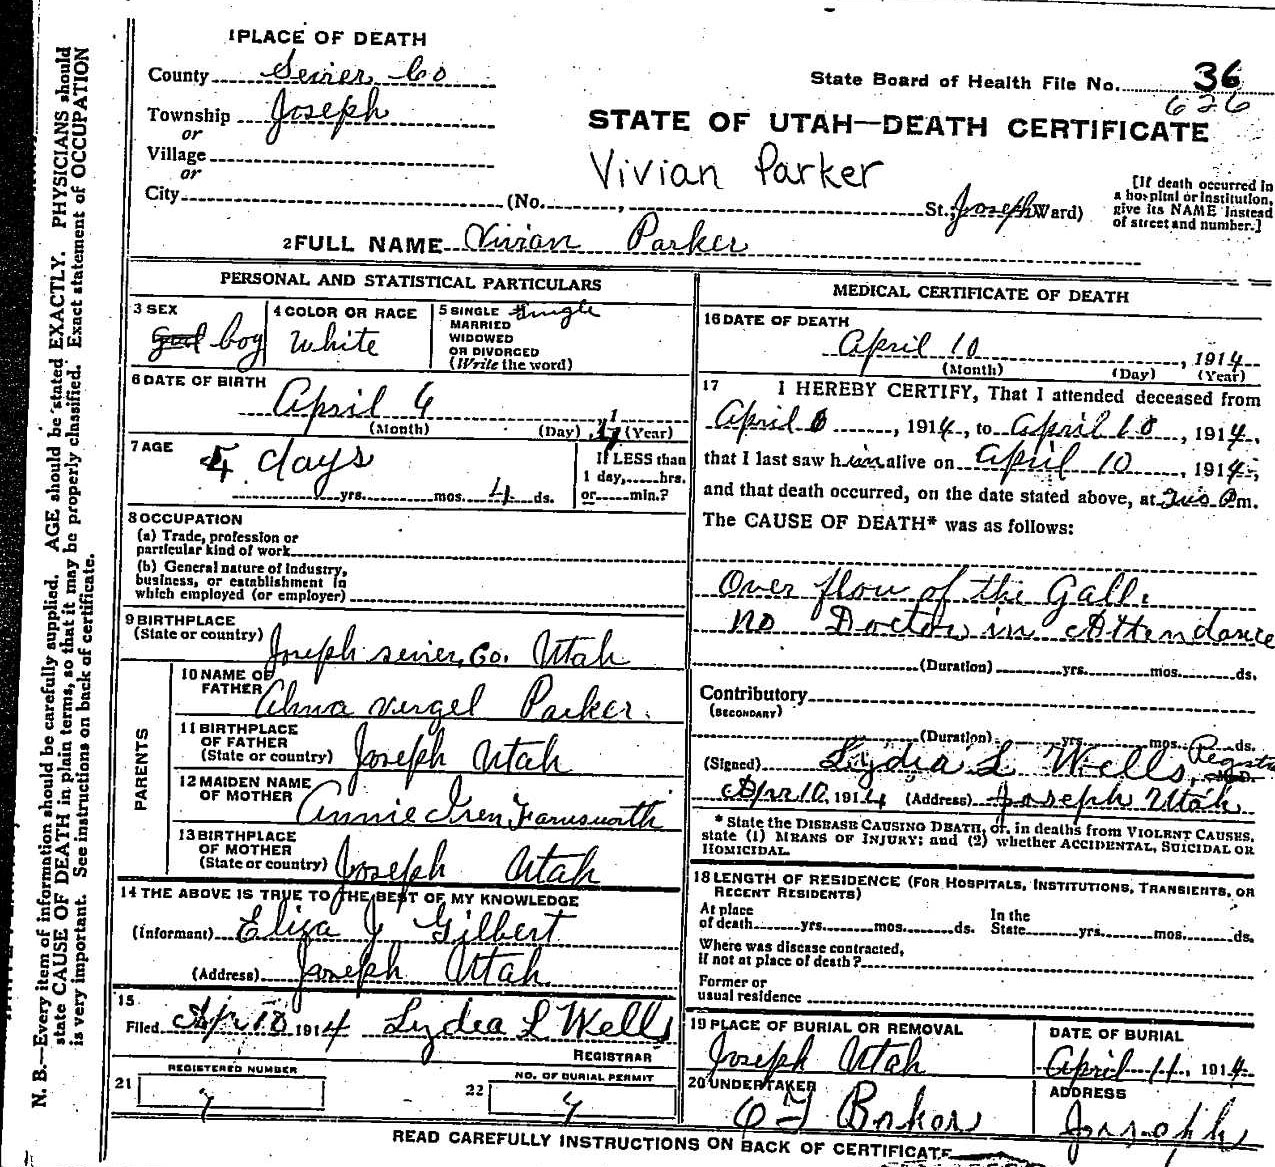 1 PLACE OF DEATH
County Sevier Co
State Board of Health File No. 36
626
Township Joseph
or
STATE OF UTAH—DEATH CERTIFICATE
Village
or
Vivian Parker
City (No. , St., Joseph Ward)
[If death occurred in a hospital or institution, give its NAME instead of street and number.]
2 FULL NAME Vivian Parker
PERSONAL AND STATISTICAL PARTICULARS
3 SEX girl boy
4 COLOR OR RACE White
5 SINGLE Single
MARRIED
WIDOWED
OR DIVORCED
(Write the word)
6 DATE OF BIRTH
April 6
(Month) (Day) , 1 (Year)
7 AGE
4 days
yrs. mos. 4 ds.
If LESS than
1 day, hrs.
or min.?
8 OCCUPATION
(a) Trade, profession or
particular kind of work
(b) General nature of industry,
business, or establishment in
which employed (or employer)
9 BIRTHPLACE
(State or country) Joseph sevier, Co. Utah
PARENTS
10 NAME OF
FATHER Alma vergel Parker.
11 BIRTHPLACE
OF FATHER
(State or country) Joseph Utah
12 MAIDEN NAME
OF MOTHER Annie Iren Farnsworth
13 BIRTHPLACE
OF MOTHER
(State or country) Joseph Utah
14 THE ABOVE IS TRUE TO THE BEST OF MY KNOWLEDGE
(Informant) Eliza J Gilbert
(Address) Joseph Utah.
15
Filed Apr 10 1914 Lydea L Wells
REGISTRAR
REGISTERED NUMBER
21
NO. OF BURIAL PERMIT
22
MEDICAL CERTIFICATE OF DEATH
16 DATE OF DEATH
April 10 , 1914
(Month) (Day) (Year)
17 I HEREBY CERTIFY, That I attended deceased from
April 6 , 1914, to April 10 , 1914,
that I last saw him alive on April 10 , 1914,
and that death occurred, on the date stated above, at P m.
The CAUSE OF DEATH* was as follows:
Over flow of the Gall.
no Doctor in Attendance
(Duration) yrs. mos. ds.
Contributory
(SECONDARY)
(Duration) yrs. mos. ds.
(Signed) Lydia L Wells, Registra M.D.
Apr 10, 1914 (Address) Joseph Utah
* State the DISEASE CAUSING DEATH, or, in deaths from VIOLENT CAUSES,
state (1) MEANS OF INJURY; and (2) whether ACCIDENTAL, SUICIDAL OR
HOMICIDAL.
18 LENGTH OF RESIDENCE (FOR HOSPITALS, INSTITUTIONS, TRANSIENTS, OR
RECENT RESIDENTS)
At place
of death yrs. mos. ds.
In the
State yrs. mos. ds.
Where was disease contracted,
If not at place of death?
Former or
usual residence
19 PLACE OF BURIAL OR REMOVAL
Joseph Utah
DATE OF BURIAL
April 11, 1914
20 UNDERTAKER
ADDRESS
Joseph
READ CAREFULLY INSTRUCTIONS ON BACK OF CERTIFICATE
N. B.—Every item of information should be carefully supplied. AGE should be stated EXACTLY. PHYSICIANS should
state CAUSE OF DEATH in plain terms, so that it may be properly classified. Exact statement of OCCUPATION
is very important. See instructions on back of certificate.